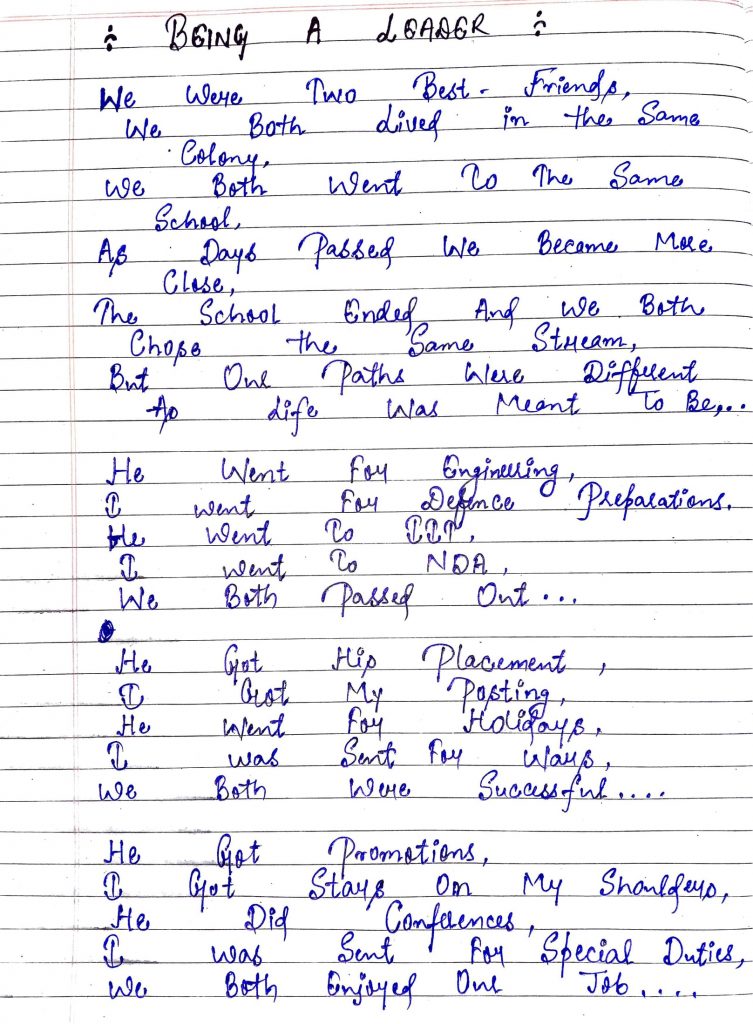 ÷ BEING A LEADER ÷
We Were Two Best - Friends,
We Both Lived in the Same
Colony,
We Both Went To The Same
School,
As Days Passed We Became More
Close,
The School Ended And We Both
Chose the Same Stream,
But Our Paths Were Different
As Life Was Meant To Be,..
He Went For Engineering,
I went For Defence Preparations.
He Went To IIT,
I went To NDA,
We Both Passed Out...
He Got His Placement,
I Got My Posting,
He Went For Holidays,
I was Sent For Wars,
We Both Were Successful....
He Got Promotions,
I Got Stars On My Shoulders,
He Did Conferences,
I was Sent For Special Duties,
We Both Enjoyed Our Job....